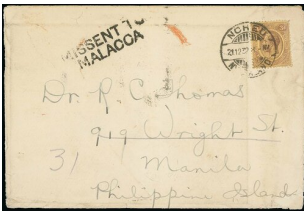 MISSENT TO
MALACCA
Dr. R. C. Thomas
919 Wright St.
31 Manila
Philippine Islands